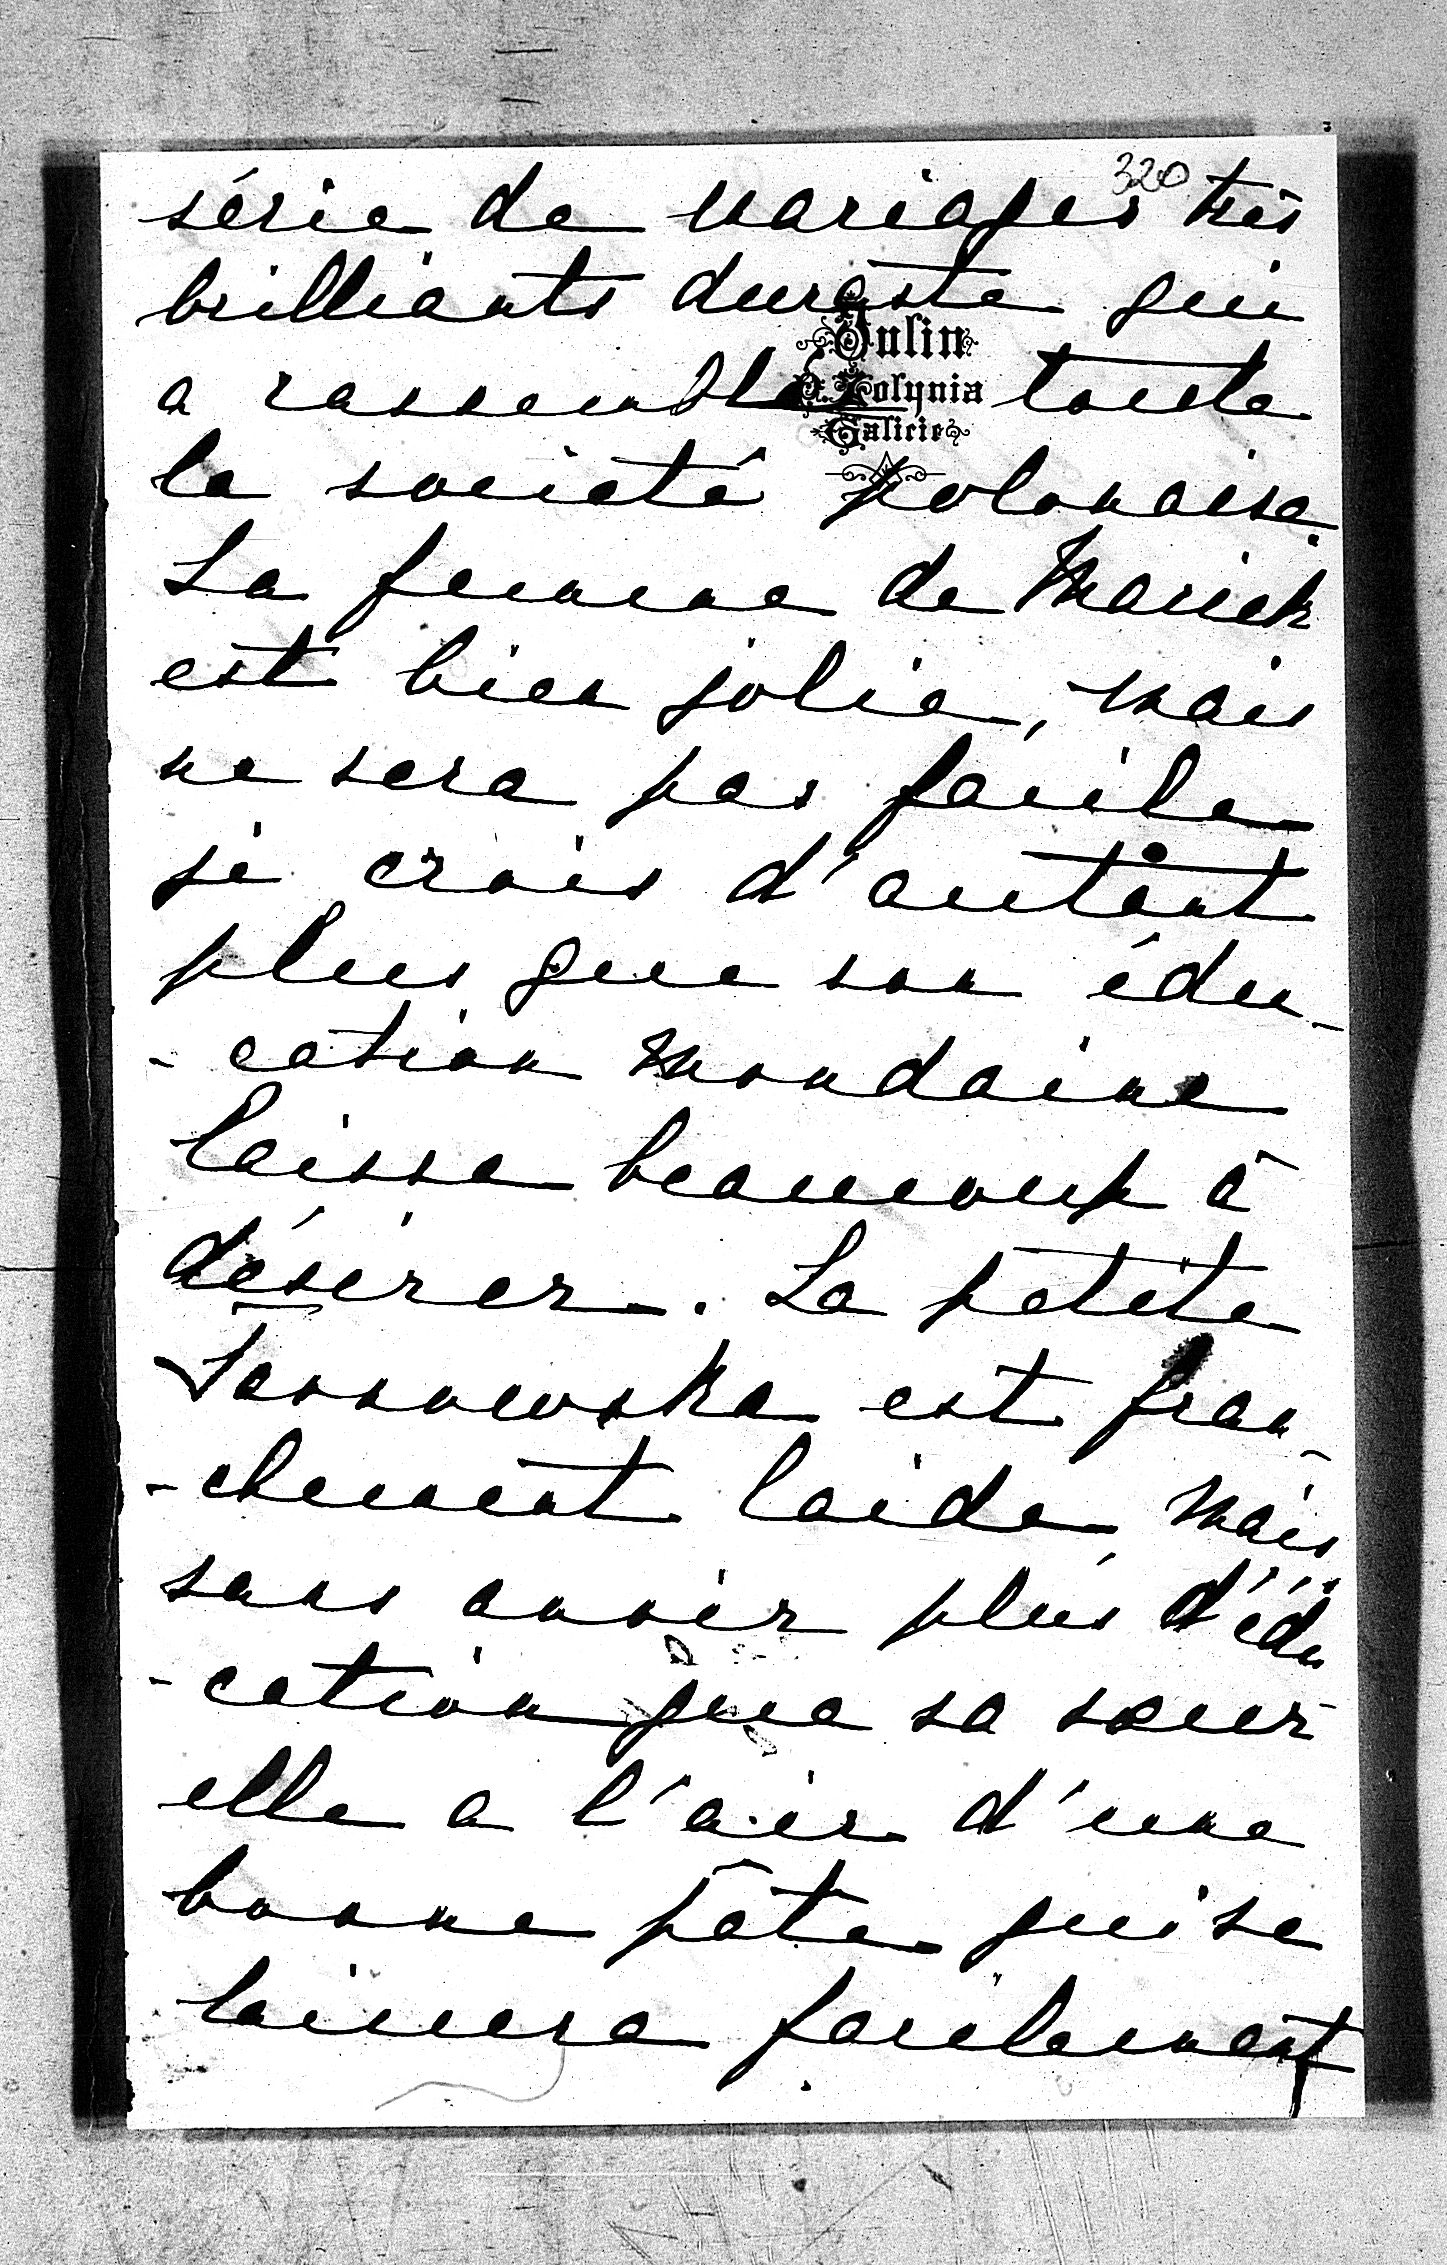 320
série de mariages très
brillants dureste qui
Julin
p. Zolynia
Galicie
a rassemblé toute
la société polonaise.
La femme de Maciek
est bien jolie, mais
ne sera pas facile
je crois d'autant
plus que son édu-
- cation mondaine
laisse beaucoup à
désirer. La petite
est fran-
- chement laide mais
sans avoir plus d'édu
- cation que sa sœur
elle a l'air d'une
bonne pâte qui se
facilement